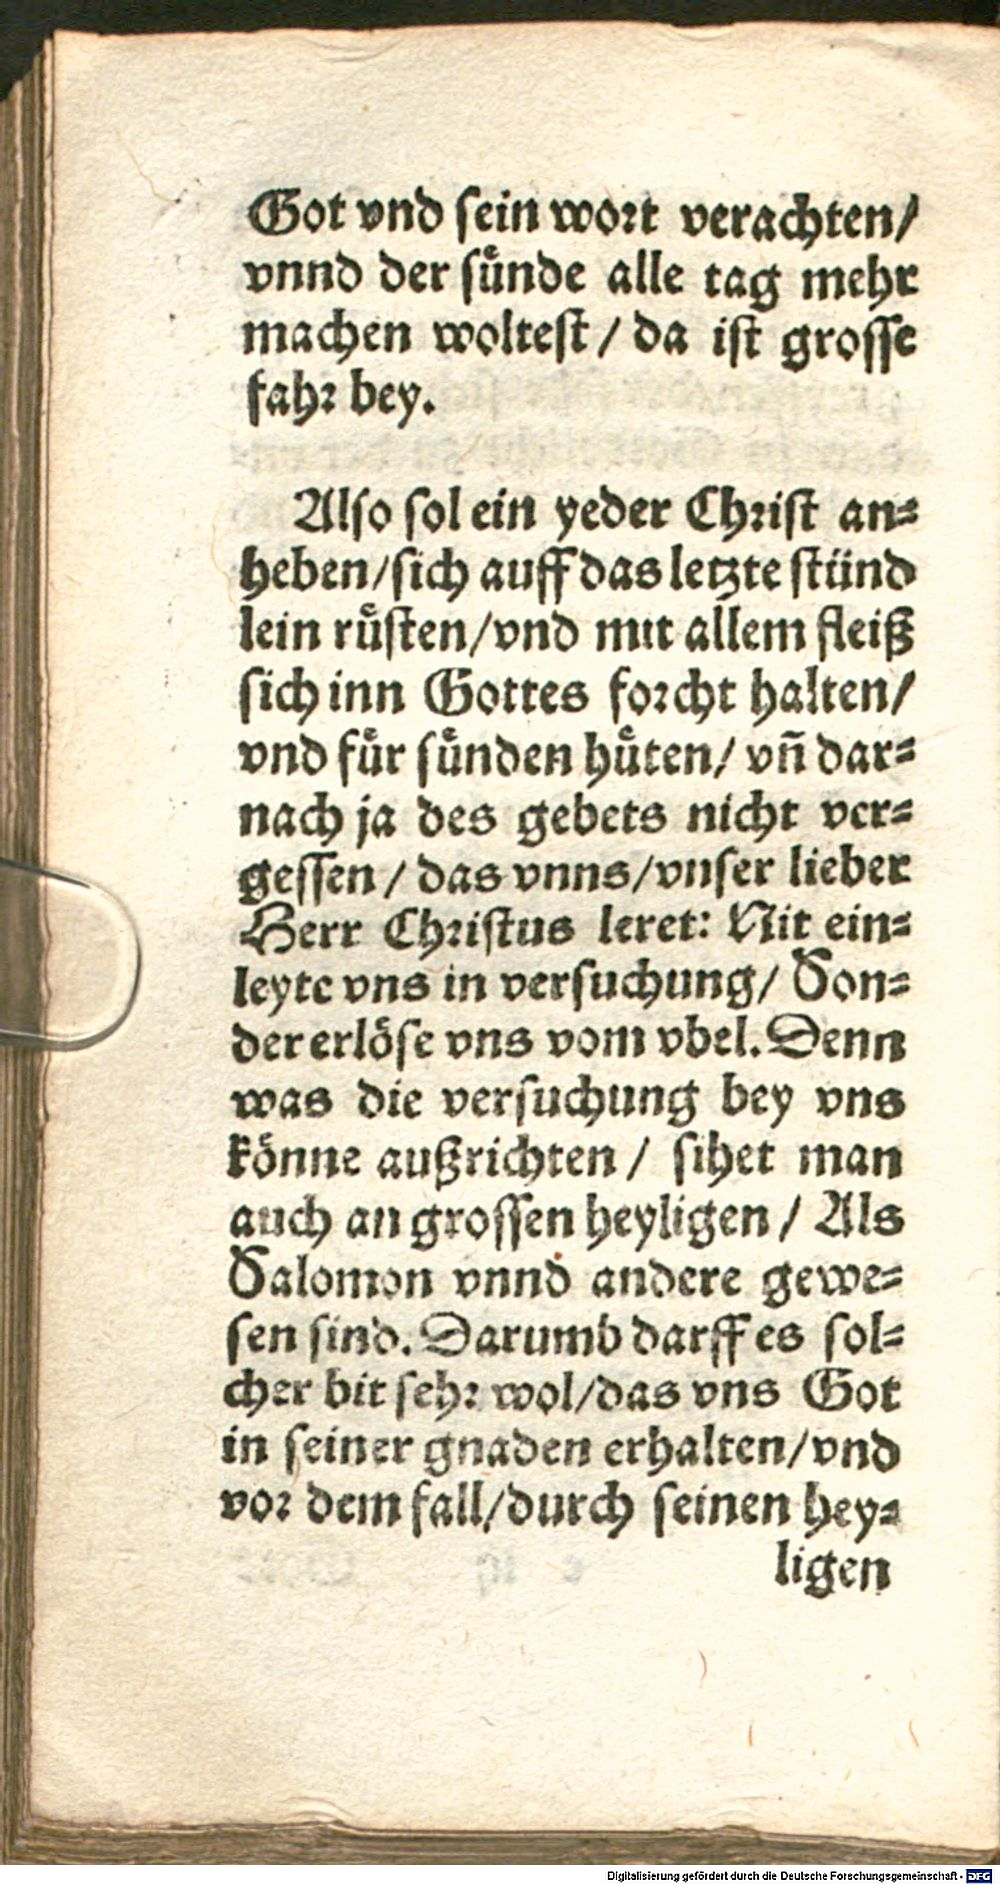 Got vnd ſein wort verachten/
vnnd der ſuͤnde alle tag mehr
machen wolteſt / da iſt groſſe
fahr bey.
Alſo ſol ein yeder Chriſt an⸗
heben/ſich auff das letzte ſtünd
lein ruͤſten/vnd mit allem fleiß
ſich inn Gottes forcht halten/
vnd fuͤr ſuͤnden huͤten/ vñ dar⸗
nach ja des gebets nicht ver⸗
geſſen / das vnns/vnſer lieber
Herr Chriſtus leret: Nit ein⸗
leyte vns in verſuchung/ Son⸗
der erlöſe vns vom vbel. Denn
was die verſuchung bey vns
könne außrichten / ſihet man
auch an groſſen heyligen / Als
Salomon vnnd andere gewe⸗
ſen ſind. Darumb darff es ſol⸗
cher bit ſehr wol/das vns Got
in ſeiner gnaden erhalten/vnd
vor dem fall/durch ſeinen hey⸗
ligen
Digitalisierung gefördert durch die Deutsche Forschungsgemeinschaft - DFG